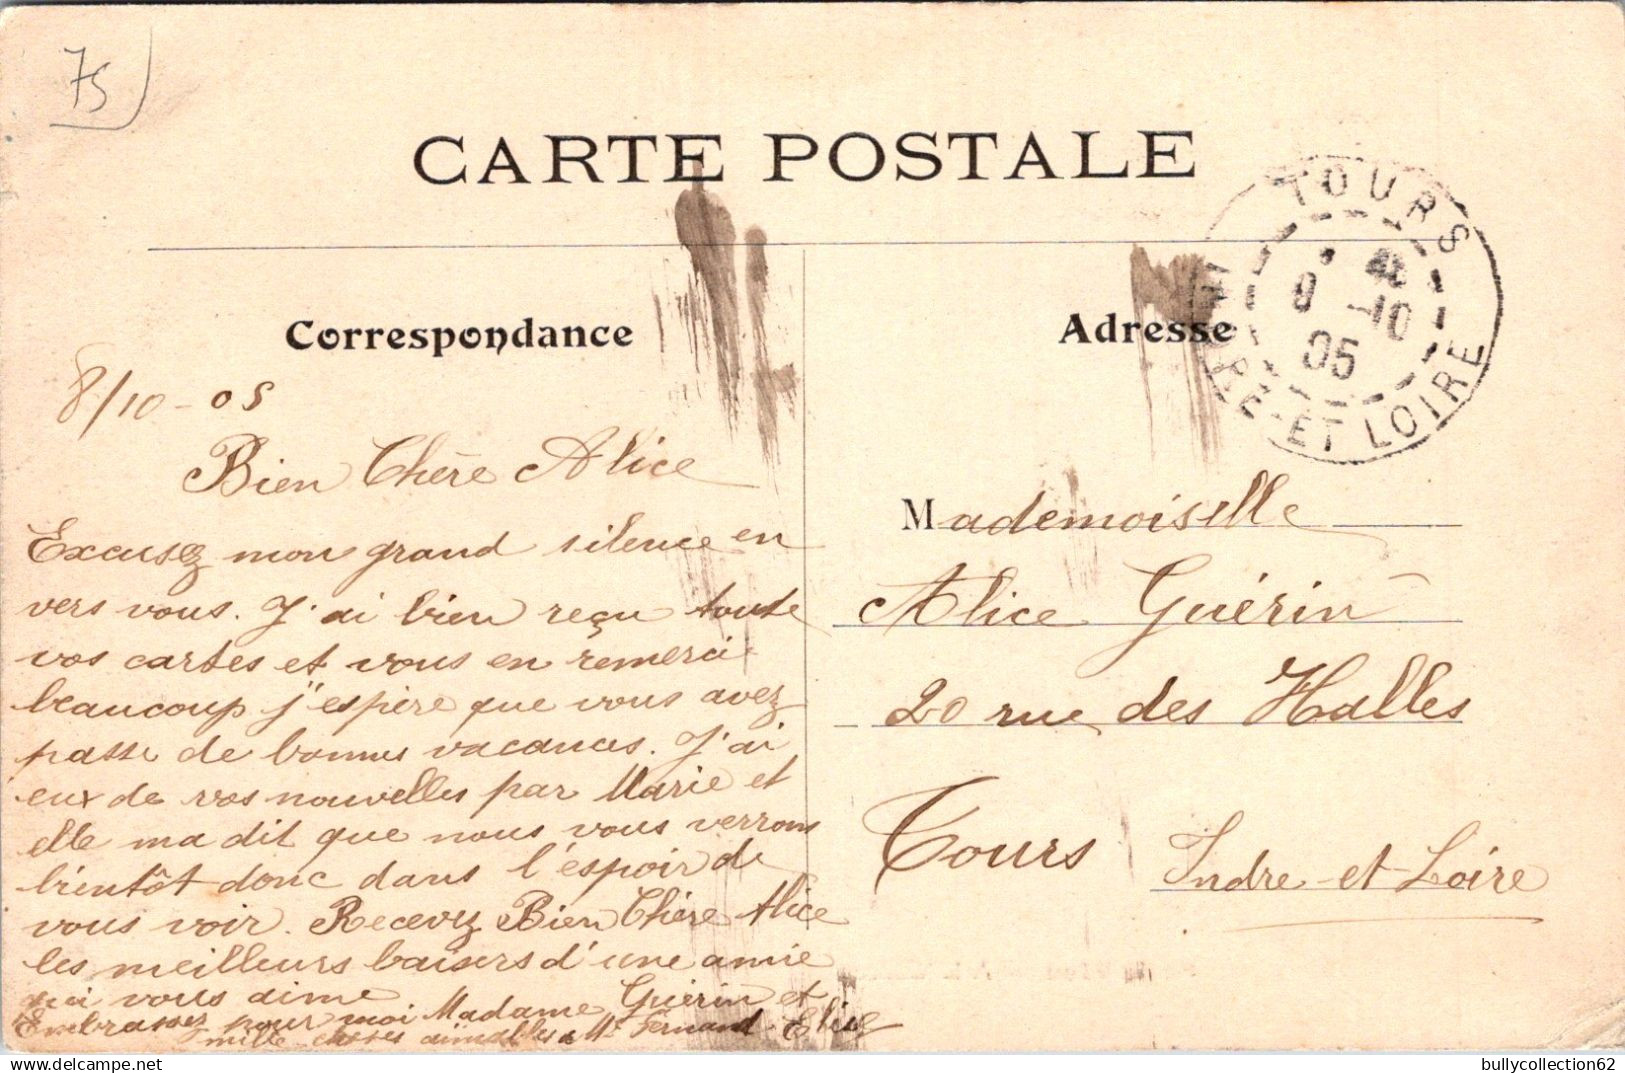 75
CARTE POSTALE
TOURS
INDRE-ET-LOIRE
9 -10
05
Correspondance
Adresse
8/10-05
Bien Chère Alice
Excusez mon grand silence en
vers vous. J'ai bien reçu toute
vos cartes et vous en remerci
beaucoup j'espère que vous avez
passe de bonnes vacances. J'ai
eux de vos nouvelles par Marie et
elle ma dit que nous vous verrons
bientôt donc dans l'espoir de
vous voir. Recevez Bien Chère Alice
les meilleurs baisers d'une amie
qui vous aime
Embrassez pour moi Madame Guérin et
mille choses aimables a Mr Fernand.
Mademoiselle
Alice Guérin
20 rue des Halles
Tours Indre-et-Loire
bullycollection62